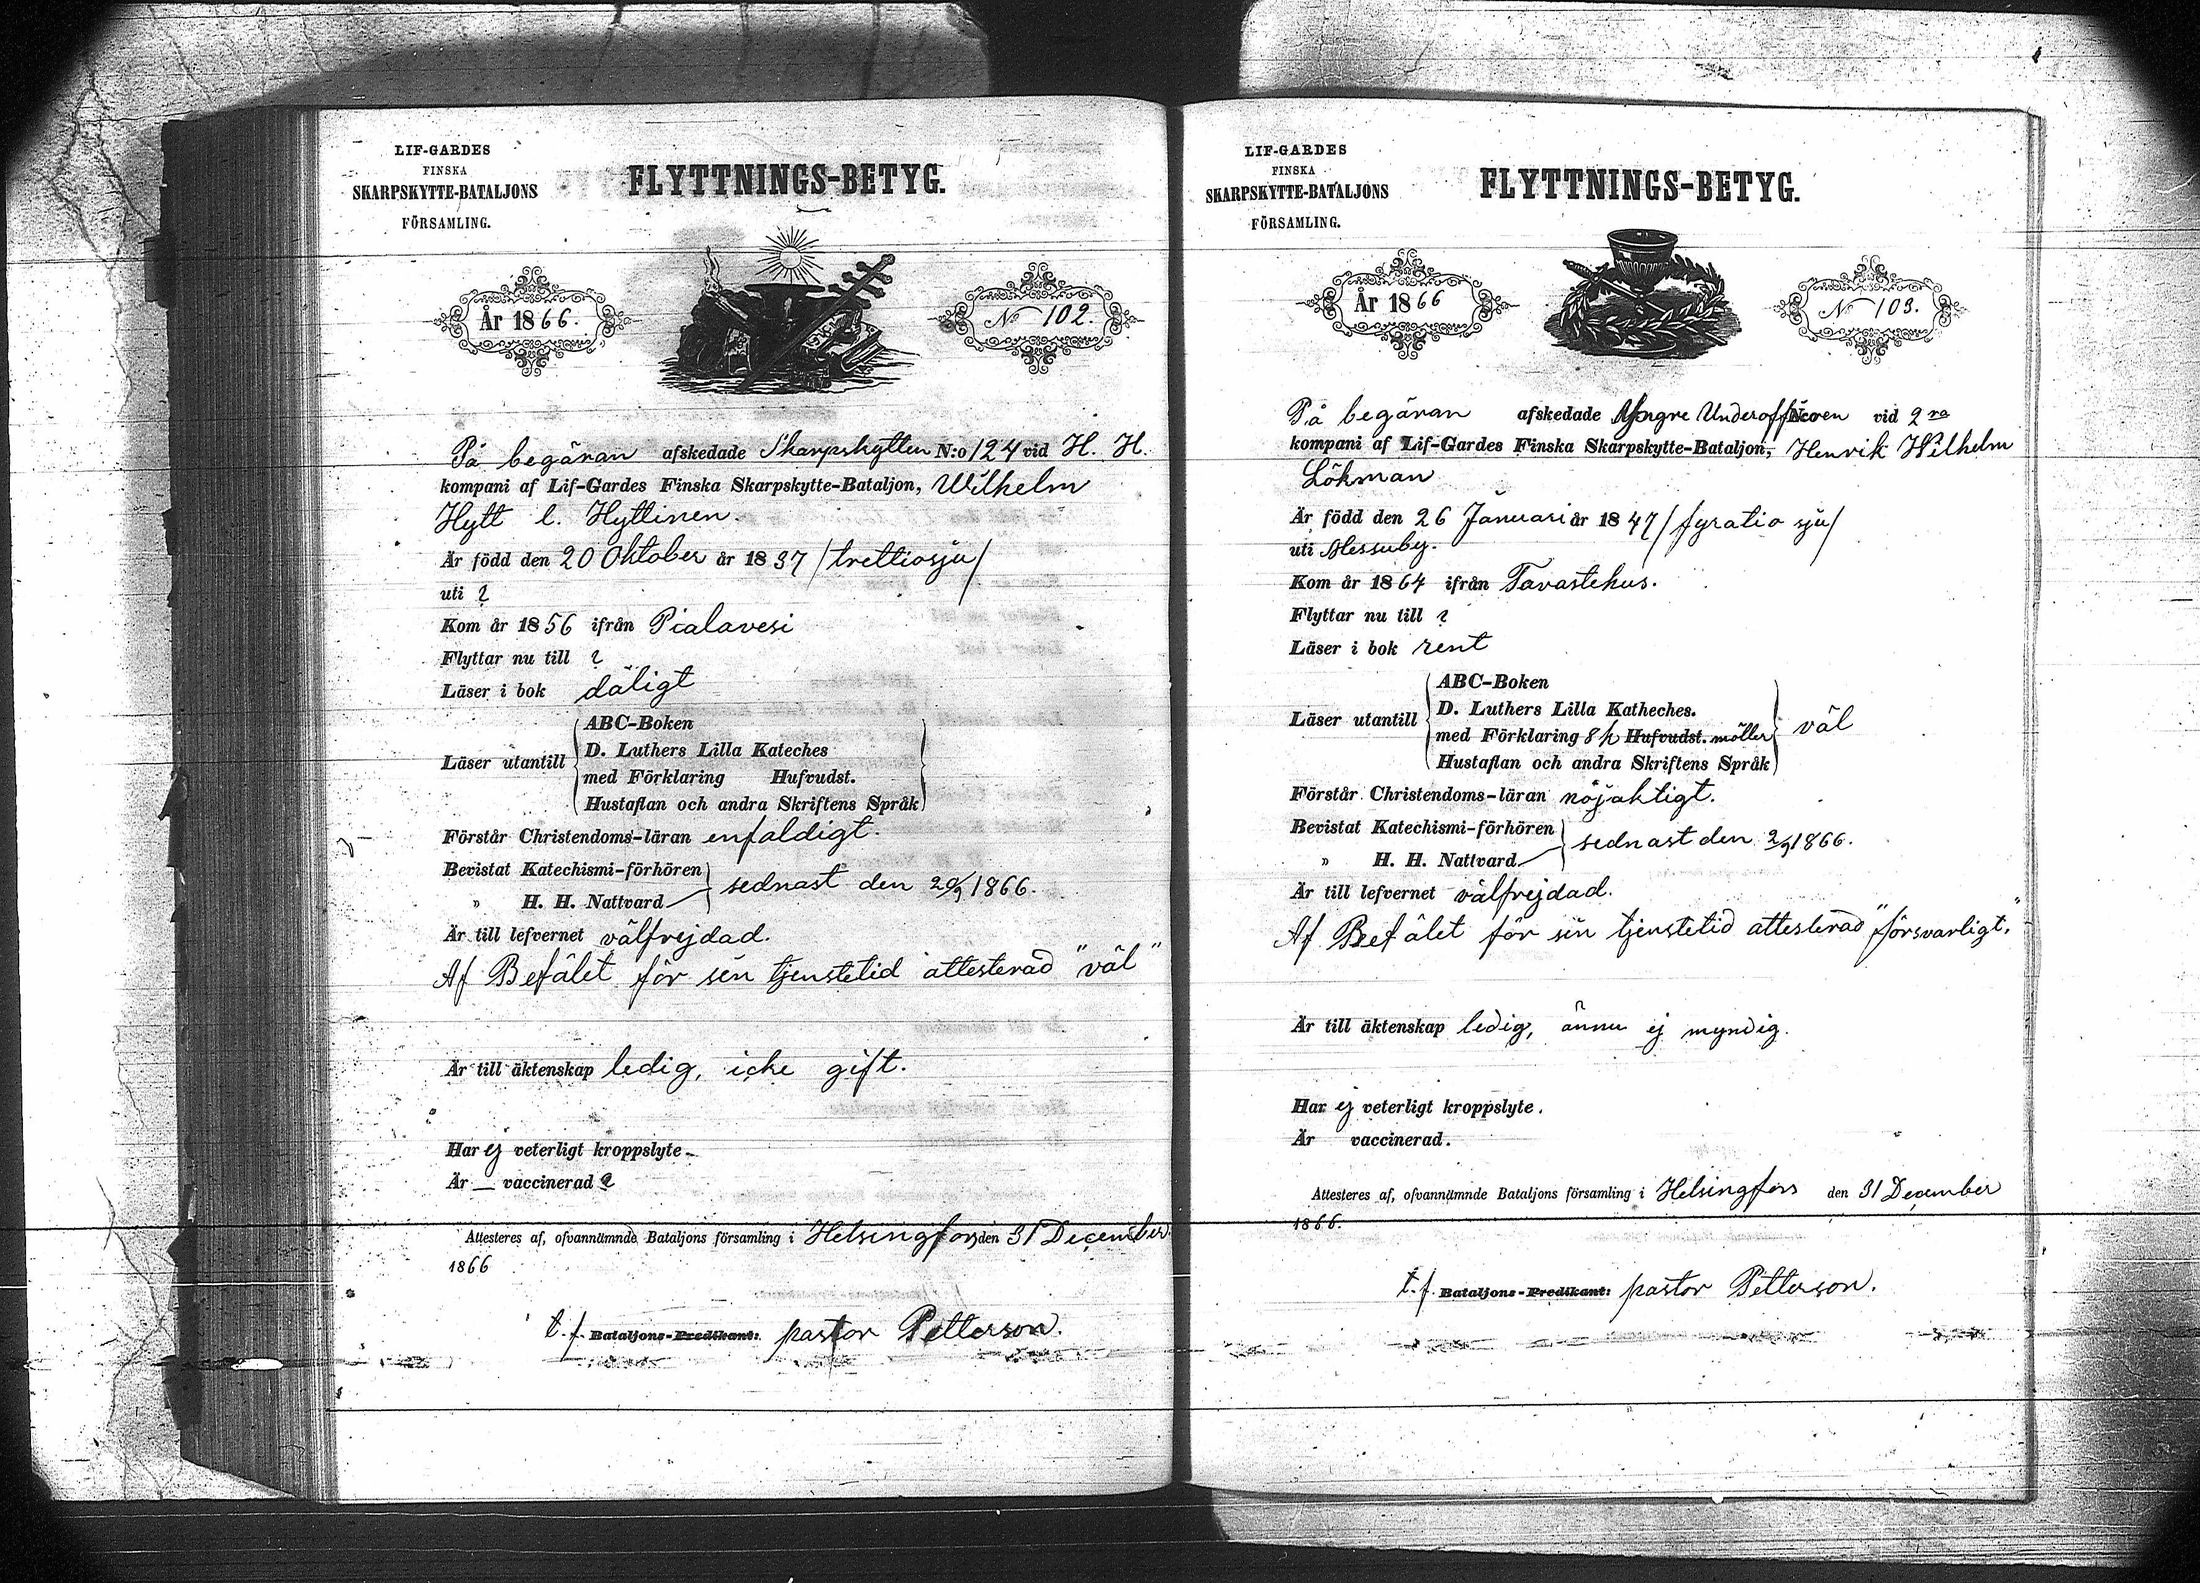 LIF-GARDES
FINSKA
SKARPSKYTTE-BATALJONS
FÖRSAMLING.
FLYTTNINGS-BETYG.
År 1866.
No 102.
På begäran afskedade Skarpskytten N:o 124 vid H. H.
kompani af Lif-Gardes Finska Skarpskytte-Bataljon, Wilhelm
Hytt l. Hyttinen.
Är född den 20 Oktober år 1837 /trettiosju/
uti ?
Kom år 1856 ifrån Pialavesi
Flyttar nu till ?
Läser i bok dåligt
Läser utantill
ABC-Boken
D. Luthers Lilla Kateches
med Förklaring Hufvudst.
Hustaflan och andra Skriftens Språk
Förstår Christendoms-läran enfaldigt.
Bevistat Katechismi-förhören
" H. H. Nattvard
sednast den 20/9 1866.
Är till lefvernet välfrejdad.
Af Befälet för sin tjenstetid attesterad "väl"
Är till äktenskap ledig, icke gift.
Har ej veterligt kroppslyte.
Är — vaccinerad ?
Attesteres af, ofvannämnde Bataljons församling i Helsingfors den 31 December
1866
t. f. Bataljons-Predikant: pastor Petterson.
LIF-GARDES
FINSKA
SKARPSKYTTE-BATALJONS
FÖRSAMLING.
FLYTTNINGS-BETYG.
År 1866
No 103.
På begäran afskedade Yngre Underofficeren vid 2ra
kompani af Lif-Gardes Finska Skarpskytte-Bataljon, Henrik Wilhelm
Lökman
Är född den 26 Januari år 1847 /fyratio sju/
uti Messuby.
Kom år 1864 ifrån Tavastehus.
Flyttar nu till ?
Läser i bok rent
Läser utantill
ABC-Boken
D. Luthers Lilla Katheches.
med Förklaring Hufvudst.
Hustaflan och andra Skriftens Språk
väl
Förstår Christendoms-läran nöjaktigt.
Bevistat Katechismi-förhören
" H. H. Nattvard
sednast den 2/9 1866.
Är till lefvernet välfrejdad.
Af Befälet för sin tjenstetid attesterad "försvarligt."
Är till äktenskap ledig, ännu ej myndig.
Har ej veterligt kroppslyte.
Är vaccinerad.
Attesteres af, ofvannämnde Bataljons församling i Helsingfors den 31 December
1866.
t. f. Bataljons-Predikant: pastor Petterson.